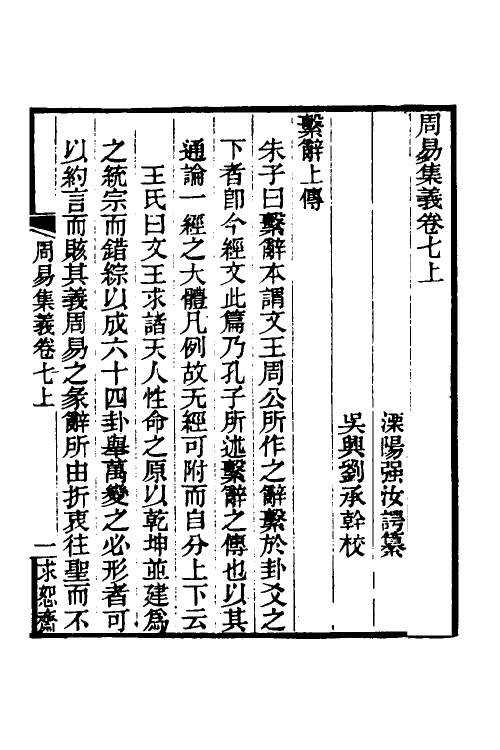 周易集義卷七上
溧陽强汝諤纂
吳興劉承幹校
繫辭上傳
朱子曰繫辭本謂文王周公所作之辭繫於卦爻之
下者卽今經文此篇乃孔子所述繫辭之傳也以其
通論一經之大體凡例故无經可附而自分上下云
王氏曰文王求諸天人性命之原以乾坤並建爲
之統宗而錯綜以成六十四卦舉萬變之必形者可
以約言而賅其義周易之彖辭所由折衷往聖而不
周易集義卷七上
一
求恕齋